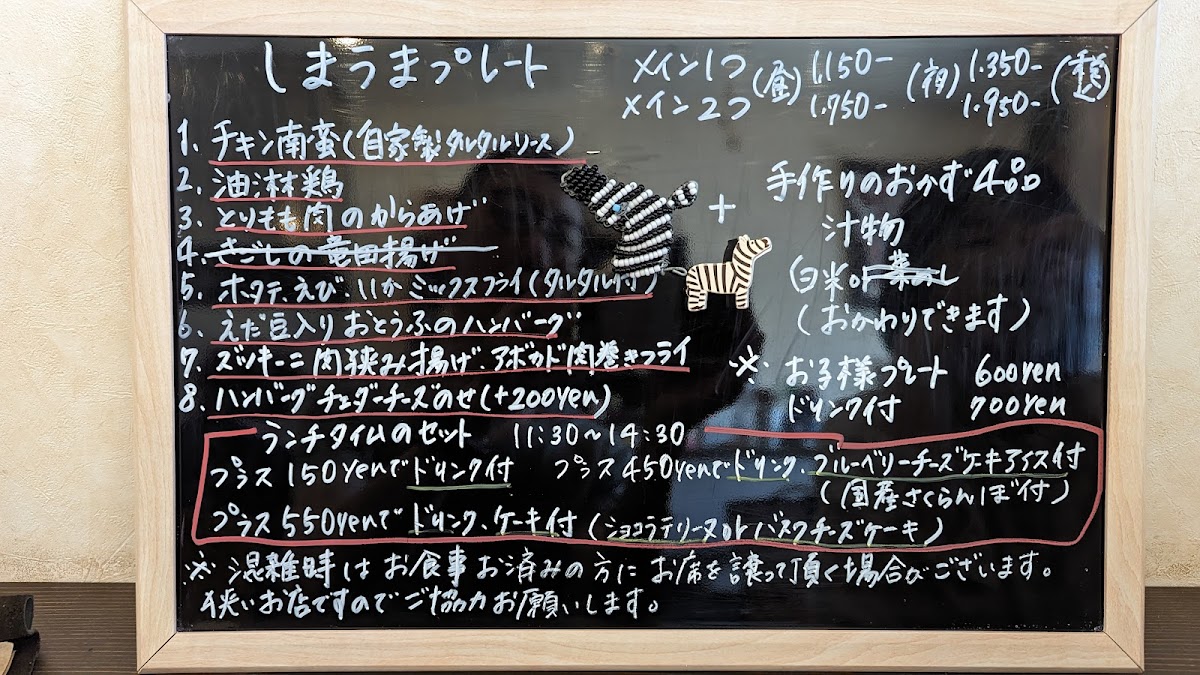 しまうまプレート
メイン1つ (昼) 1.150- (夜) 1.350- (税込)
メイン2つ 1.750- 1.950-
1. チキン南蛮(自家製タルタルソース)
2. 油淋鶏
3. とりもも肉のからあげ
4. さごしの竜田揚げ
5. ホタテ、えび、いかミックスフライ(タルタル付)
6. えだ豆入りおとうふのハンバーグ
7. ズッキーニ肉挟み揚げ、アボカド肉巻きフライ
8. ハンバーグチェダーチーズのせ(+200yen)
+ 手作りのおかず4品
汁物
白米or
(おかわりできます)
※ お子様プレート 600yen
ドリンク付 700yen
ランチタイムのセット 11:30~14:30
プラス150yenでドリンク付 プラス450yenでドリンク、ブルーベリーチーズケーキアイス付
(国産さくらんぼ付)
プラス550yenでドリンク、ケーキ付(ショコラテリーヌorバスクチーズケーキ)
※ 混雑時はお食事お済みの方にお席を譲って頂く場合がございます。
狭いお店ですのでご協力お願いします。